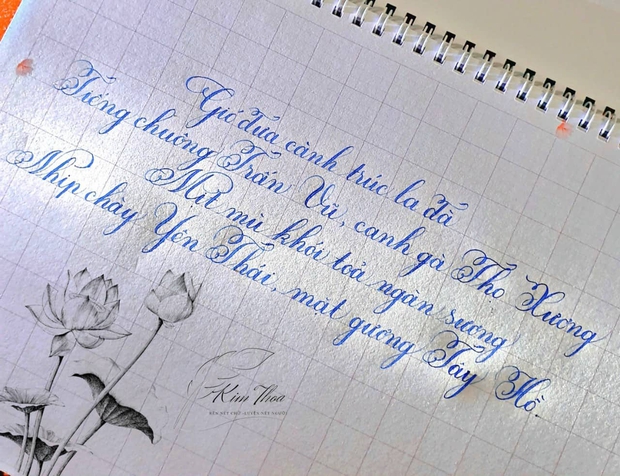 Gió đưa cành trúc la đà
Tiếng chuông Trấn Vũ, canh gà Thọ Xương
Mịt mù khói toả ngàn sương
Nhịp chày Yên Thái, mặt gương Tây Hồ.
Kim Thoa